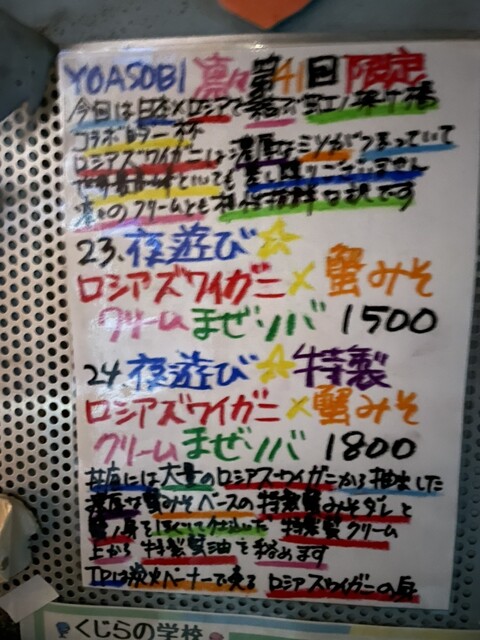 YOASOBI 凛々 第41回 限定
今回は日本×ロシアで
コラボラー杯
ロシアズワイガニは濃厚なミソがつまっていて
クリームとも相性抜群な訳です
23.夜遊び☆
ロシアズワイガニ×蟹みそ
クリームまぜソバ 1500
24.夜遊び☆特製
ロシアズワイガニ×蟹みそ
クリームまぜソバ 1800
丼底には大量のロシアズワイガニから抽出した
濃厚な蟹みそベースの特製蟹みそダレと
蟹ノ身をほぐして仕込んだ特製蟹クリーム
上から特製蟹油を絡めます
TPは炭火バーナーで炙るロシアズワイガニの肩
くじらの学校